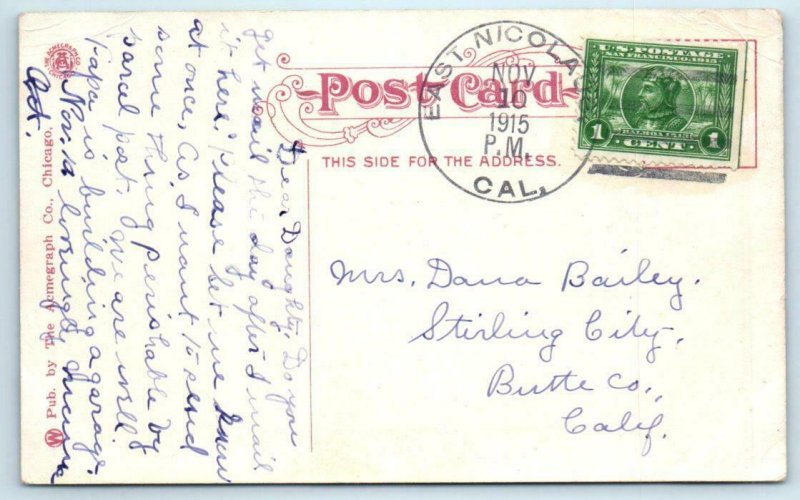 Post Card
THIS SIDE FOR THE ADDRESS.
EAST NICOLAUS
NOV
10
1915
P.M.
CAL.
U.S. POSTAGE
SAN FRANCISCO, 1915
BALBOA 1513
1 CENT 1
Mrs. Dana Bailey.
Stirling City,
Butte Co.,
Calif.
Dear Daughty, Do you
get mail the day after I mail
it here? Please let me know
at once, as I want to send
some thing perishable by
parcel post. We are well.
Papa is building a garage.
Nov. 10 lovingly
THE ACMEGRAPH CO.
CHICAGO
W Pub. by The Acmegraph Co., Chicago.